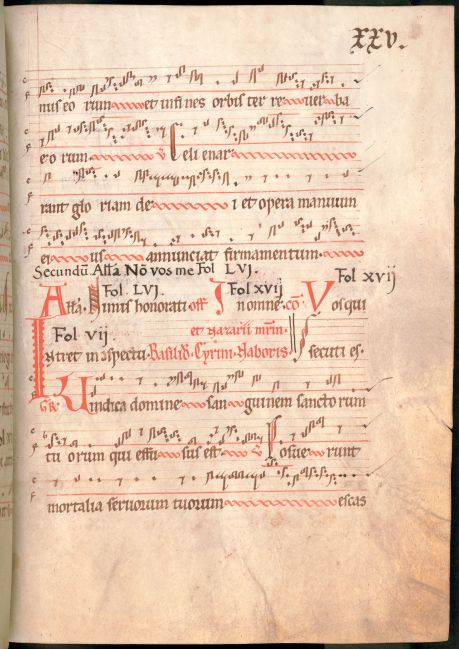 XXV.
nus eo rum et in fines orbis ter re ver ba
e o rum. V Celi enar
rant glo riam de i et opera manuum
ei us annunciat firmamentum.
Secundū Allā Nō vos me Fol LVJ.
Fol LVJ. Fol xvij Fol xvij
Allā. Nimis honorati off In omnē. cō Vos qui
et Nazarii mrm.
Fol vij.
Intret in cspectu. Basilid. Cyrini. Naboris secuti es.
Gr Vindica domine san guinem sancto rum
tu orum qui effu sus est. Posue runt
mortalia servorum tuorum escas